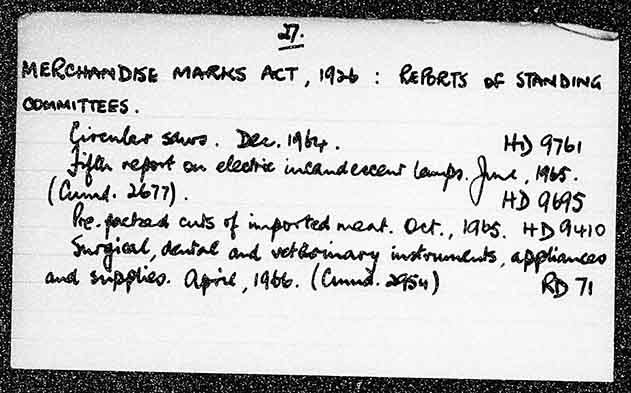 27.
MERCHANDISE MARKS ACT, 1926 : REPORTS OF STANDING
COMMITTEES.
Circular saws. Dec. 1964. HD 9761
Fifth report on electric incandescent lamps. June, 1965.
(Cmnd. 2677). HD 9695
Pre-packed cuts of imported meat. Oct., 1965. HD 9410
Surgical, dental and veterinary instruments, appliances
and supplies. April, 1966. (Cmnd. 2954) RD 71